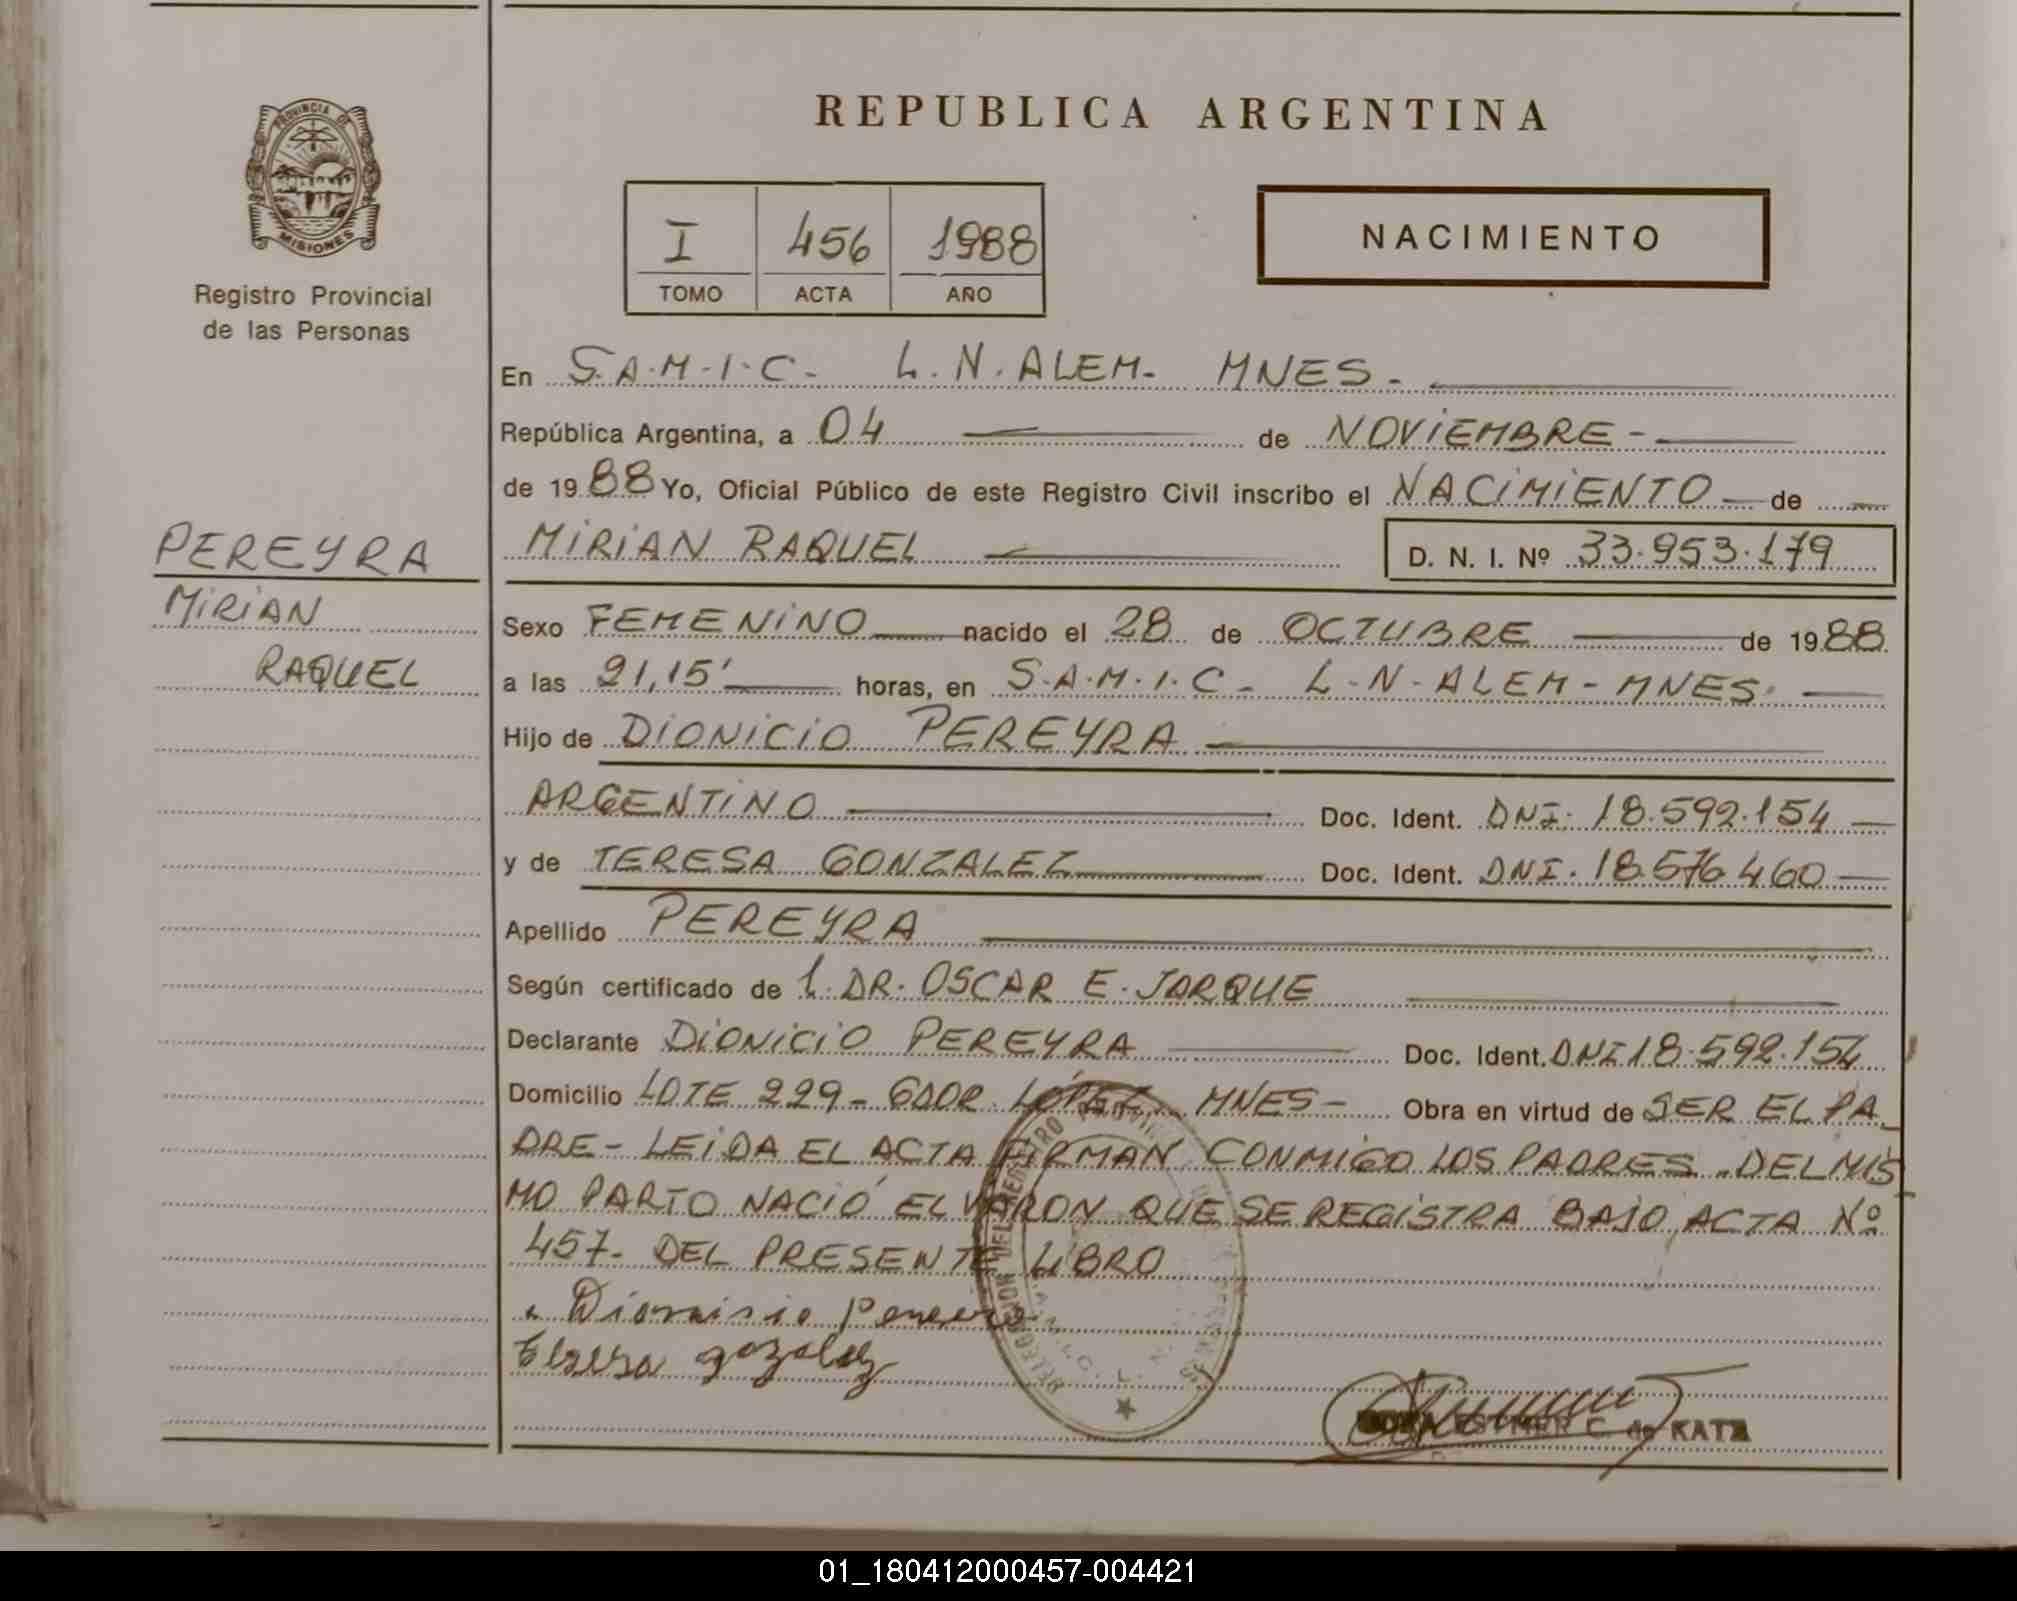 REPUBLICA ARGENTINA
PROVINCIA DE
MISIONES
Registro Provincial
de las Personas
I 456 1988
TOMO ACTA AÑO
NACIMIENTO
En S.A.M.I.C. L.N. ALEM. MNES.
República Argentina, a 04 de NOVIEMBRE
de 1988 Yo, Oficial Público de este Registro Civil inscribo el NACIMIENTO de
MIRIAN RAQUEL D. N. I. Nº 33.953.179
PEREYRA
MIRIAN
RAQUEL
Sexo FEMENINO nacido el 28 de OCTUBRE de 1988
a las 21,15' horas, en S.A.M.I.C. L.N. ALEM - MNES.
Hijo de DIONICIO PEREYRA
ARGENTINO Doc. Ident. DNI. 18.592.154
y de TERESA GONZALEZ Doc. Ident. DNI. 18.576.460
Apellido PEREYRA
Según certificado de l. DR. OSCAR E. JARQUE
Declarante DIONICIO PEREYRA Doc. Ident. DNI 18.592.154
Domicilio LOTE 229 - GDOR. LOPEZ MNES - Obra en virtud de SER EL PA
DRE - LEIDA EL ACTA FIRMAN CONMIGO LOS PADRES. DEL MIS
MO PARTO NACIÓ EL VARON QUE SE REGISTRA BAJO ACTA Nº
457 - DEL PRESENTE LIBRO
Dionisio Pereyra
Teresa gozalez
ESTHER C. de KATZ
01_180412000457-004421